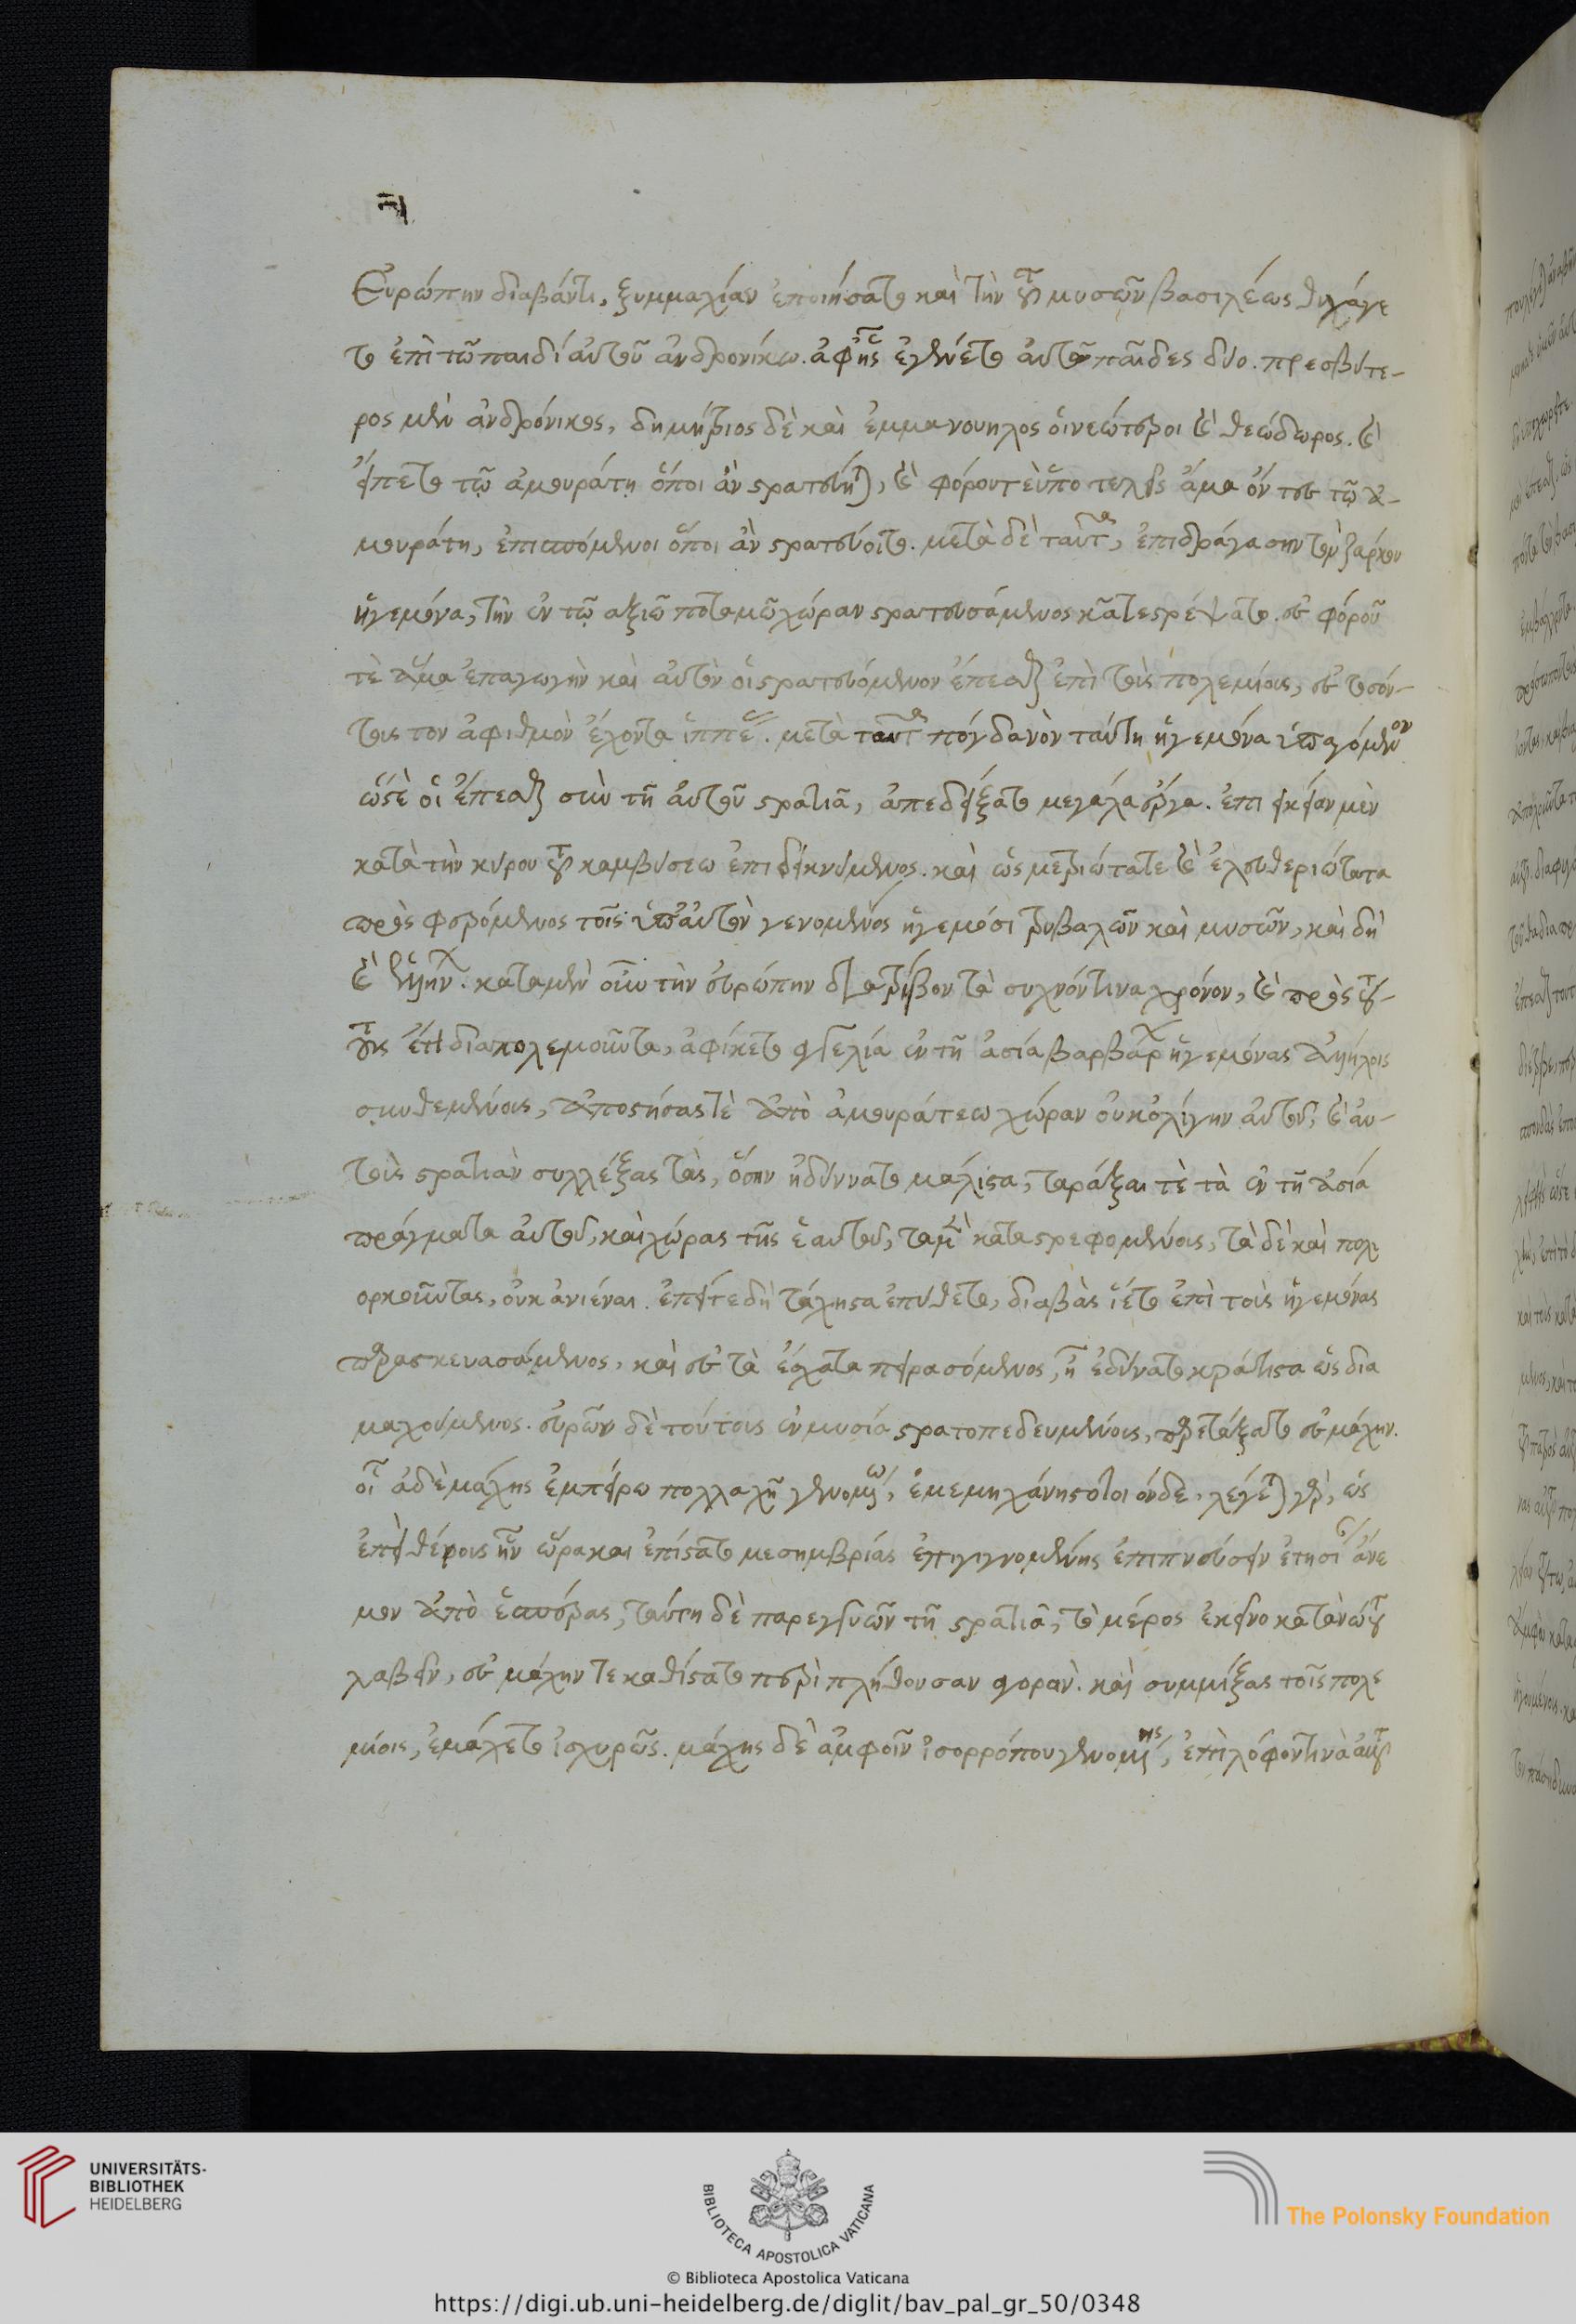 Εὐρώπην διαβάντι, ξυμμαχίαν ἐποιήσατο καὶ τὴν τοῦ μυσῶν βασιλέως θυγάγε
το ἐπὶ τῶ παιδί αὐτοῦ ἀνδρονίκω. ἀφ' ἧς ἐγένετο αὐτῶ παῖδες δύο. πρεσβύτε-
ρος μὲν ἀνδρόνικος, δημήτριος δὲ καὶ ἐμμανουηλος οἱ νεώτεροι καὶ θεόδωρος. καὶ
εἵπετο τῶ ἀμουράτη ὅποι ἂν στρατεύηται, καὶ φόρου τὲ ὑποτελεῖς ἅμα ὄντες τῶ ἀ-
μουράτη, ἐπισπόμενοι ὅποι ἂν στρατεύοιτο. μετὰ δὲ ταῦτα, ἐπὶ δράγασην τὸν ζάρκου
ἡγεμόνα, τὴν ἐν τῶ αξιῶ ποταμῶ χώραν στρατευσάμενος κατεστρέψατο. ες φόρου
τὲ ἅμα ἐπαγωγὴν καὶ αὐτὸν οἱ στρατευόμενον ἕπεσθαι ἐπὶ τοὺς πολεμίους, ες τοσόν-
τους τον ἀριθμὸν ἔχοντα ἱππέας. μετὰ ταῦτα πόγδανὸν ταύτη ἡγεμόνα ὑπαγόμενον
ὥστὲ οἱ ἕπεσθαι σὺν τῆ αὐτοῦ στρατιᾶ, ἀπεδείξατο μεγάλα ἔργα. ἐπιείκειαν μὲν
κατὰ τὴν κύρου τοῦ καμβύσεω ἐπιδεικνύμενος. καὶ ὡς μετριώτατε καὶ ἐλευθεριώτατα
προσφερόμενος τοῖς ὑπ' αὐτὸν γενομένοις ἡγεμόσι τριβαλῶν καὶ μυσῶν, καὶ δὴ
καὶ ἑλλήνων. κατα μὲν οὖν τὴν εὐρώπην διατρίβοντα συχνόν τινα χρόνον, καὶ πρὸς τού-
τους ἔτι διαπολεμοῦντα, ἀφίκετο ἀγγελία ἐν τῆ ἀσία βαρβάρων ἡγεμόνας ἀλλήλοις
συνθεμένους, ἀποστήσας τὲ ἀπὸ ἀμουράτεω χώραν οὐκ ὀλίγην αὐτοῦ, καὶ αυ-
τοὺς στρατιὰν συλλέξας τὰς, ὅσην ἠδύνατο μάλιστα, ταράξαι τὲ τὰ ἐν τῆ ἀσία
πράγματα αὐτοῦ, καὶ χώρας τῆς ἑαυτοῦ, τα μὲν καταστρεφομένους, τὰ δὲ καὶ πολι
ορκοῦντας, οὐκ ἀνιέναι. ἐπείτε δὴ τάχιστα ἐπύθετο, διαβὰς ἵετο ἐπὶ τοὺς ἡγεμόνας
παρασκευασάμενος, καὶ ες τὰ ἔσχατα πειρασόμενος, ἧ ἐδύνατο κράτιστα ὡς δια
μαχούμενος. εὑρὼν δὲ τούτους ἐν μυσία στρατοπεδευμένους, παρετάξατο ες μάχην.
οἷα δὲ μάχης ἐμπείρω πολλαχῆ γενομένω, ἐμεμηχάνητό τοι όνδε. λέγεται γὰρ, ὡς
ἐπεὶ θέρους ἦν ὥρα και ἐπίστατο μεσημβρίας ἐπιγιγνομένης ἐπιπνεύσειν ἐτησίους ἀνέ
μου ἀπὸ ἑσπέρας, ταύτη δὲ παρεγγυῶν τῆ στρατιᾶ, τὸ μέρος ἐκεῖνο κατὰ νώτου
λαβεῖν, ες μάχην τε καθίστατο περὶ πλήθουσαν ἀγοράν. καὶ συμμίξας τοῖς πολε
μίοις, ἐμάχετο ἰσχυρῶς. μάχης δὲ ἀμφοῖν ἰσορρόπου γενομένης, ἐπὶ λόφον τινὰ αὐτοῦ
UNIVERSITÄTS-
BIBLIOTHEK
HEIDELBERG
BIBLIOTECA APOSTOLICA VATICANA
The Polonsky Foundation
© Biblioteca Apostolica Vaticana
https://digi.ub.uni-heidelberg.de/diglit/bav_pal_gr_50/0348